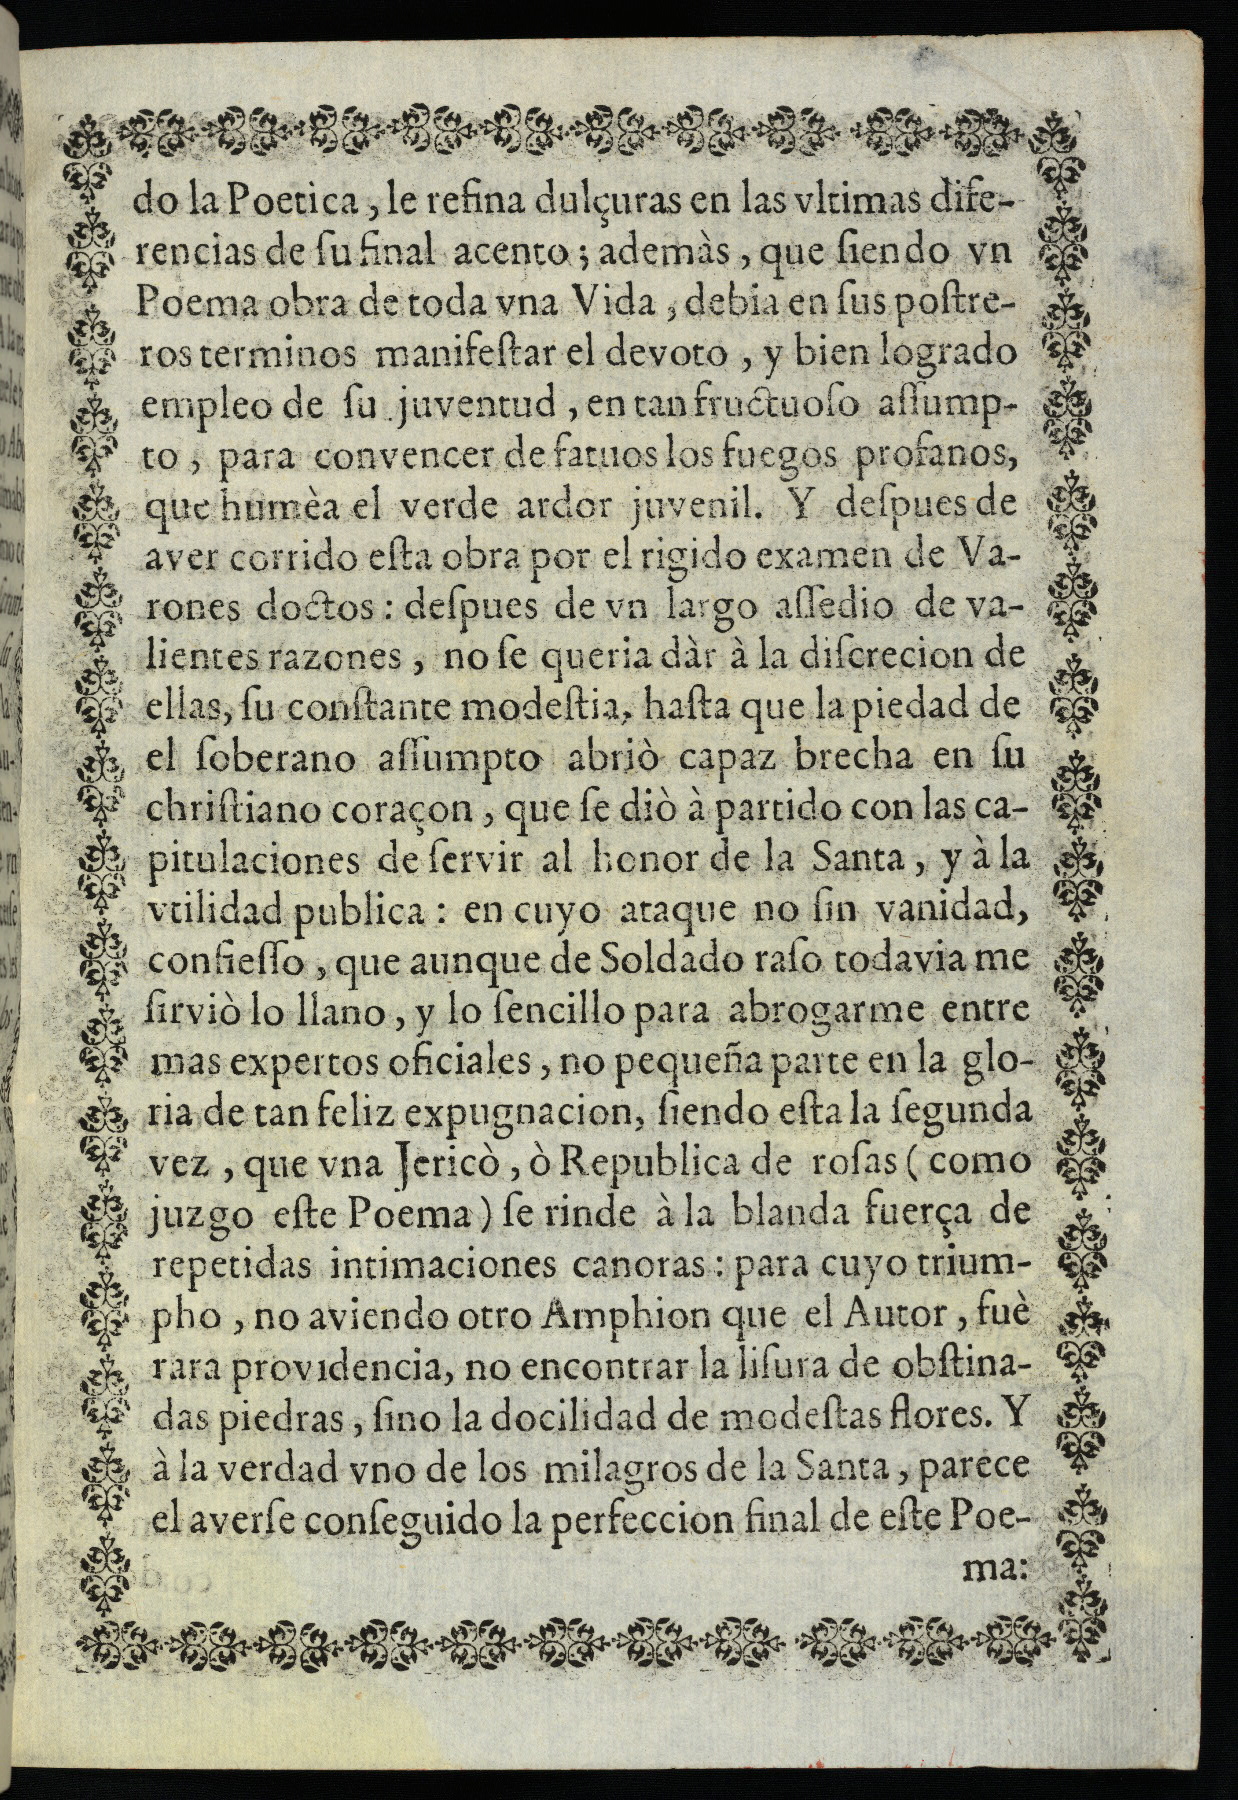 do la Poetica, le refina dulçuras en las vltimas dife-
rencias de ſu final acento; ademàs, que ſiendo vn
Poema obra de toda vna Vida, debia en ſus poſtre-
ros terminos manifeſtar el devoto, y bien logrado
empleo de ſu juventud, en tan fructuoſo aſſump-
to, para convencer de fatuos los fuegos profanos,
que humèa el verde ardor juvenil. Y deſpues de
aver corrido eſta obra por el rigido examen de Va-
rones doctos: deſpues de vn largo aſſedio de va-
lientes razones, no ſe queria dàr à la diſcrecion de
ellas, ſu conſtante modeſtia, haſta que la piedad de
el ſoberano aſſumpto abriò capaz brecha en ſu
chriſtiano coraçon, que ſe diò à partido con las ca-
pitulaciones de ſervir al honor de la Santa, y à la
vtilidad publica: en cuyo ataque no ſin vanidad,
confieſſo, que aunque de Soldado raſo todavia me
ſirviò lo llano, y lo ſencillo para abrogarme entre
mas expertos oficiales, no pequeña parte en la glo-
ria de tan feliz expugnacion, ſiendo eſta la ſegunda
vez, que vna Jericò, ò Republica de roſas (como
juzgo eſte Poema) ſe rinde à la blanda fuerça de
repetidas intimaciones canoras: para cuyo trium-
pho, no aviendo otro Amphion que el Autor, fuè
rara providencia, no encontrar la liſura de obſtina-
das piedras, ſino la docilidad de modeſtas flores. Y
à la verdad vno de los milagros de la Santa, parece
el averſe conſeguido la perfeccion final de eſte Poe-
ma: